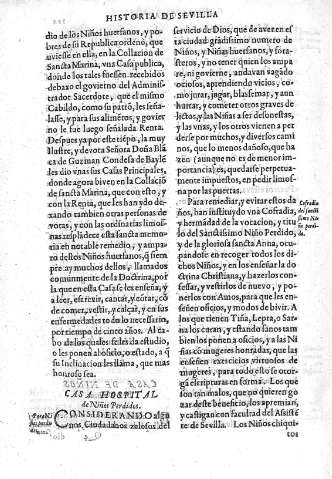 HISTORIA DE SEVILLA
dio de los Niños huerfanos, y po-
bres de su Republica ordenò, que
aviesse en ella, en la Collacion de
Sancta Marina, vna Casa publica,
donde los tales fuessen recebidos
debaxo del govierno del Adminis-
trador Sacerdote, que el mismo
Cabildo, como su patrõ, les seña-
lasse, y para sus alimentos, y govier
no le fue luego señalada Renta.
Despues ya por este tiẽpo, la muy
Ilustre, y devota Señora Doña Blã
ca de Guzman Condesa de Baylẽ
les dio vnas sus Casas Principales,
donde agora biven en la Collaciõ
de Sancta marina, que con esto, y
con la Renta, que les han ydo de-
xando tambien otras personas de
votas, y con las ordinarias limos-
nas resplãdece esta sancta memo-
ria en notable remedio, y ampa-
ro destos Niños huerfanos, q̃ siem
pre ay muchos dellos, llamados
comũnmente de la Doctrina, por
la que en esta Casa se les enseña, y
a leer, escrevir, cantar, y orar, cõ
de comer, vestir, y calçar, y en sus
enfermedades todo lo necessario,
por tiempo de cinco años. Al ca-
bo de los quales se les da estudio,
o les ponen à oficio, o estado, a q̃
su Inclinacion les llama, que mas
honroso sea.
CASA HOSPITAL
de Niños Perdidos.
CONSIDERANDO algu
nos, Ciudadanos zelosos del
servicio de Dios, que de aver en es
ta ciudad grãdissimo numero de
Niños, y Niñas huerfanas, y fora-
steros, y no tener quien los ampa
re, ni govierne, andavan vagãdo
ociosos, aprendiendo vicios, co-
mo jurar, jugar, blasfemar, y aun
hurtar, y cometer otros graves de
lictos, y las Niñas a ser deshonestas,
y las vnas, y los otros vienen a per
derse por muchos, y diversos cami
nos, que lo menos dañoso, que ha
zen (aunque no es de menor im-
portancia) es, quedarse perpetua-
mente impuestos, en pedir limos-
na por las puertas.
Para remediar, y evitar estos da
ños, han instituydo vna Cofradia,
y hermãdad de la vocacion, y titu
lo del Sanctissimo Niño Perdido,
y de la gloriosa sancta Anna, ocu-
pandose en recoger todos los di-
chos Niños, y en les enseñar la do
ctrina Christiana, y hazerlos con-
fessar, y vestirlos de nuevo, y po-
nerlos con Amos, para que les en-
señen oficios, y modos de bivir. A
los que tienen Tiña, Lepra, o Sar-
na los curan, y estando sanos tam-
bien los ponen a oficios, y a las Ni
ñas con mugeres honradas, que las
enseñen exercicios virtuosos de
mugeres, y para todo esto se otor-
gã escripturas en forma. Los que
son tan malos, que no quieren go-
zar deste beneficio, los apremian,
y castigan con facultad del Asiste
te de Sevilla. Los Niños chiqui-
tos